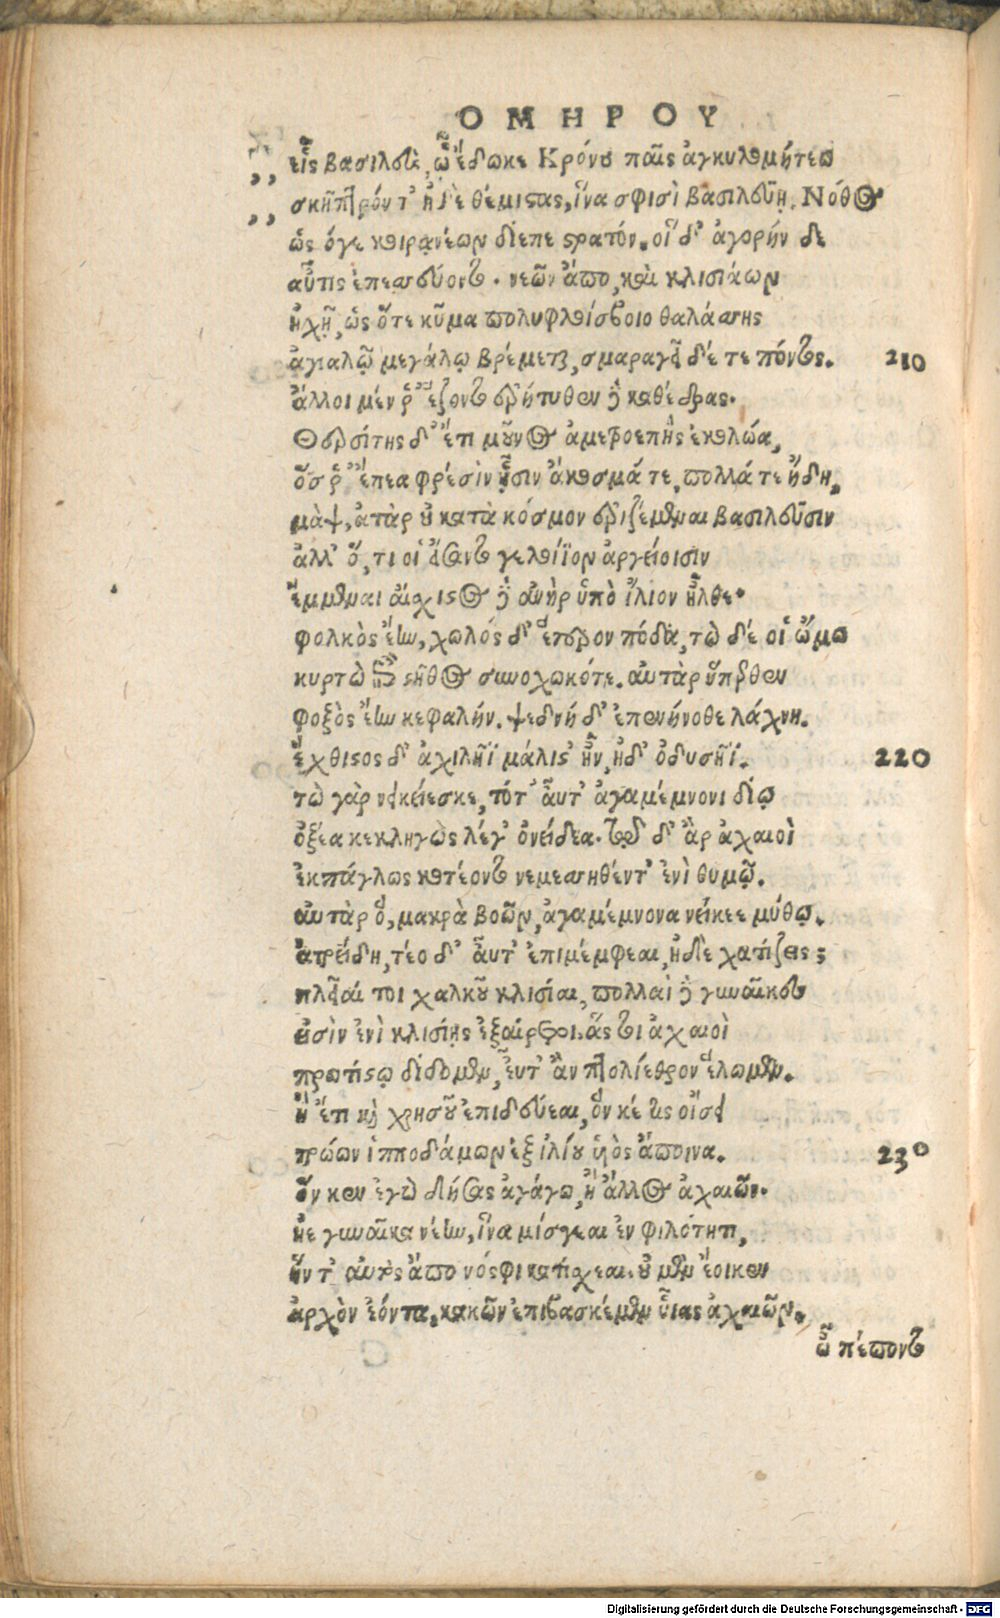 ΟΜΗΡΟΥ
,, εἷς βασιλεὺς, ᾧ ἔδωκε Κρόνου παῖς ἀγκυλομήτεω
,, σκῆπτρόν τ' ἠδὲ θέμιστας, ἵνα σφισὶ βασιλεύῃ. Νόθος
ὣς ὅγε κοιρανέων δίεπε στρατόν. οἳ δ' ἀγορήν δε
αὖτις ἐπεσσεύοντο. νεῶν ἄπο, καὶ κλισιάων
ἠχῇ, ὡς ὅτε κῦμα πολυφλοίσβοιο θαλάσσης
αἰγιαλῷ μεγάλῳ βρέμεται, σμαραγεῖ δέ τε πόντος. 210
ἄλλοι μέν ῥ' ἕζοντο ἐρήτυθεν δὲ καθέδρας.
Θερσίτης δ' ἔτι μοῦνος ἀμετροεπὴς ἐκολώα,
ὅς ῥ' ἔπεα φρέσὶν ᾗσιν ἄκοσμά τε, πολλά τε ᾔδη,
μὰψ, ἀτὰρ οὐ κατὰ κόσμον ἐριζέμεναι βασιλεῦσιν
ἀλλ' ὅ, τι οἱ εἴσαιτο γελοίϊον ἀργείοισιν
ἔμμεναι αἴχιστος δὲ ἀνὴρ ὑπὸ ἴλιον ἦλθε.
φολκὸς ἔην, χωλός δ' ἕτερον πόδα, τὼ δέ οἱ ὤμω
κυρτὼ ἐπὶ στῆθος συνοχωκότε. αὐτὰρ ὕπερθεν
φοξὸς ἔην κεφαλήν. ψεδνή δ' ἐπενήνοθε λάχνη.
ἔχθιστος δ' ἀχιλῆϊ μάλιστ' ἦν, ἠδ' ὀδυσῆϊ. 220
τὼ γὰρ νεικείεσκε, τότ' αὖτ' ἀγαμέμνονι δίῳ
ὀξέα κεκληγὼς λέγ' ὀνείδεα. τῷ δ' ἂρ ἀχαιοὶ
ἐκπάγλως κοτέοντο νεμεσσηθέντ' ἐνὶ θυμῷ.
αὐτὰρ ὁ, μακρὰ βοῶν, ἀγαμέμνονα νείκεε μύθῳ.
ἀτρείδη, τέο δ' αὖτ' ἐπιμέμφεαι, ἠδὲ χατίζεις;
πλεῖαί τοι χαλκοῦ κλισίαι, πολλαὶ δὲ γυναῖκες
εἰσὶν ἐνὶ κλισίῃς ἐξαίρετοι. ἅς τοι ἀχαιοὶ
πρωτίστῳ δίδομεν, εὖτ' ἂν πτολίεθρον ἕλωμεν.
ἦ ἔτι καὶ χρησοῦ ἐπιδεύεαι, ὅν κέ τις οἴσει
τρώων ἱπποδάμων ἐξ ἰλίου υἷος ἄποινα. 230
ὅν κεν ἐγὼ δήσας ἀγάγω, ἢ ἄλλος ἀχαιῶν.
ἠε γυναῖκα νέην, ἵνα μίσγεαι ἐν φιλότητι,
ἥν τ' αὐτὸς ἄπο νόσφι κατίχεαι. οὐ μὲν ἔοικεν
ἀρχὸν ἐόντα, κακῶν ἐπιβασκέμεν υἷας ἀχαιῶν.
ὦ πέπονες
Digitalisierung gefördert durch die Deutsche Forschungsgemeinschaft - DFG